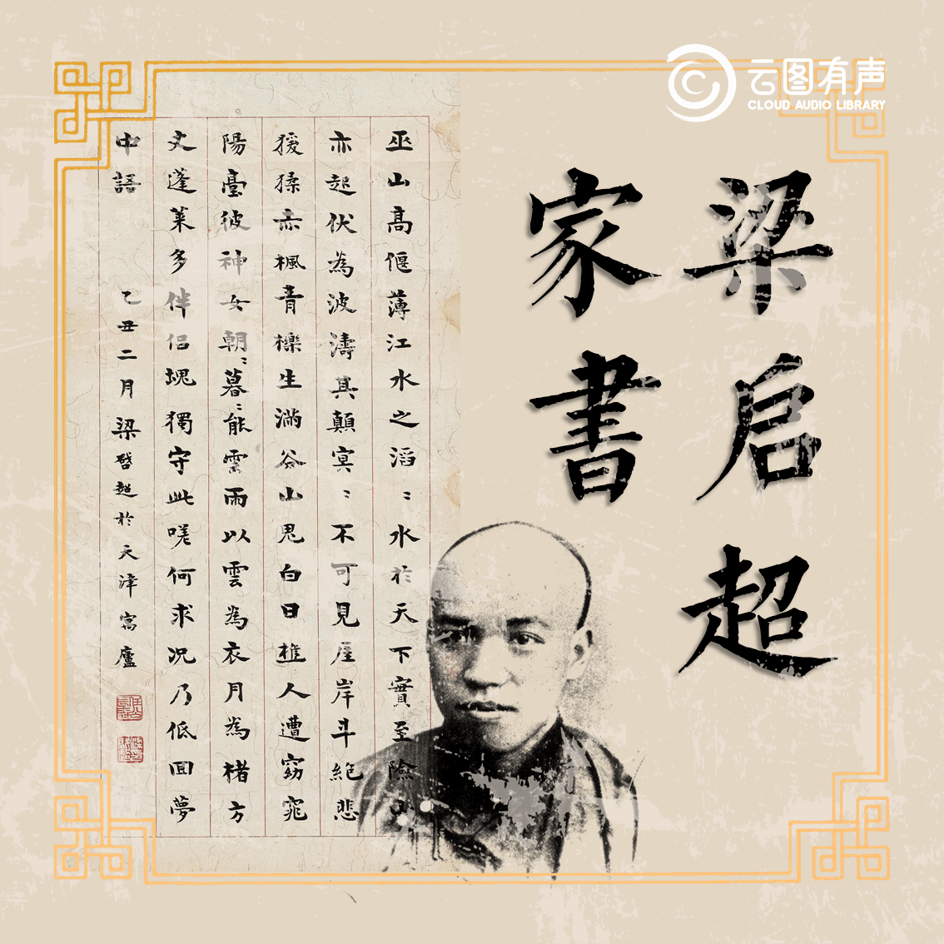 云图有声
CLOUD AUDIO LIBRARY
梁启超
家書
巫山高偃薄江水之滔〻水於天下實至險
亦起伏為波濤其顛冥〻不可見崖岸斗絕悲
猨猱赤楓青櫟生滿谷山鬼白日樵人遭窈窕
陽臺彼神女朝〻暮〻能雲雨以雲為衣月為楮方
丈蓬萊多伴侶塊獨守此嗟何求況乃低囬夢
中語 乙丑二月梁啓超於天津寓廬